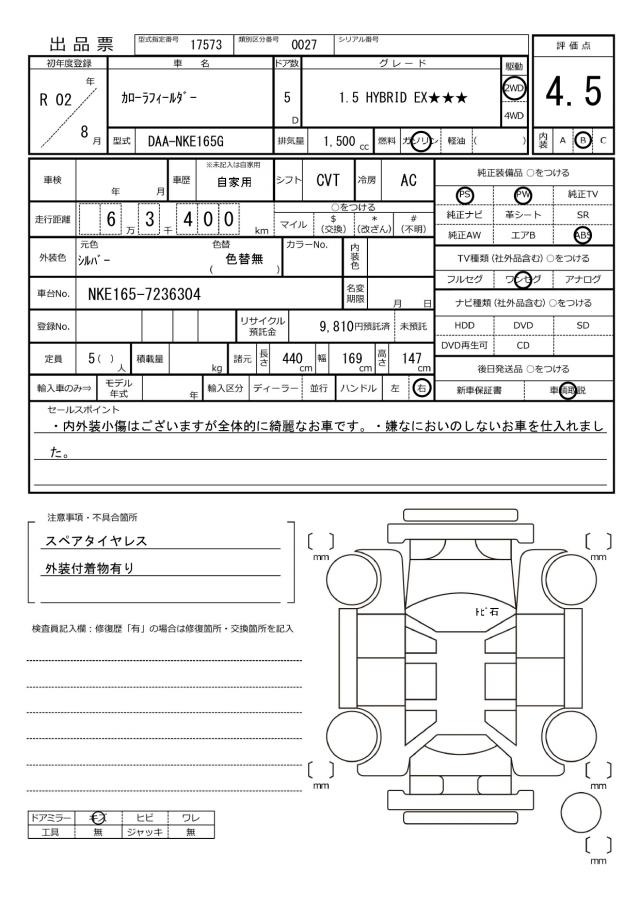 出品票 型式指定番号 17573 類別区分番号 0027 シリアル番号
評価点
初年度登録 車名 ドア数 グレード 駆動
R 02 年 8 月 ｶﾛｰﾗﾌｨｰﾙﾀﾞｰ 5 D 1.5 HYBRID EX★★★ 2WD 4WD
4.5
型式 DAA-NKE165G 排気量 1,500 cc 燃料 ガソリン 軽油 ( ) 内装 A B C
車検 年 月 車歴 ※未記入は自家用 自家用 シフト CVT 冷房 AC
純正装備品 ○をつける
PS PW 純正TV
走行距離 6 万 3 千 4 0 0 km ○をつける
マイル $ (交換) * (改ざん) # (不明)
純正ナビ 革シート SR
純正AW エアB ABS
外装色 元色 ｼﾙﾊﾞｰ 色替 ( 色替無 ) カラーNo. 内装色
TV種類 (社外品含む) ○をつける
フルセグ ワンセグ アナログ
車台No. NKE165-7236304 名変期限 月 日
ナビ種類 (社外品含む) ○をつける
登録No. リサイクル預託金 9,810円預託済 未預託
HDD DVD SD
DVD再生可 CD
定員 5 ( ) 人 積載量 kg 諸元 長さ 440 cm 幅 169 cm 高さ 147 cm
後日発送品 ○をつける
輸入車のみ⇒ モデル年式 年 輸入区分 ディーラー 並行 ハンドル 左 右
新車保証書 車輌取説
セールスポイント
・内外装小傷はございますが全体的に綺麗なお車です。・嫌なにおいのしないお車を仕入れまし
た。
注意事項・不具合箇所
スペアタイヤレス
外装付着物有り
検査員記入欄：修復歴「有」の場合は修復箇所・交換箇所を記入
〔 〕 mm
〔 〕 mm
ﾄﾋﾞ石
〔 〕 mm
〔 〕 mm
〔 〕 mm
ドアミラー キズ ヒビ ワレ
工具 無 ジャッキ 無